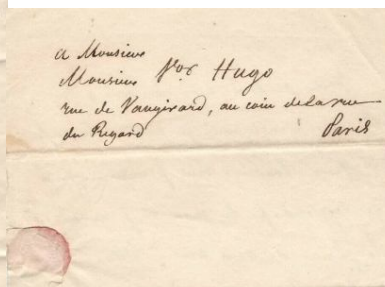 A Monsieur
Monsieur Vor Hugo
rue de Vaugirard, au coin de la rue
du Regard Paris